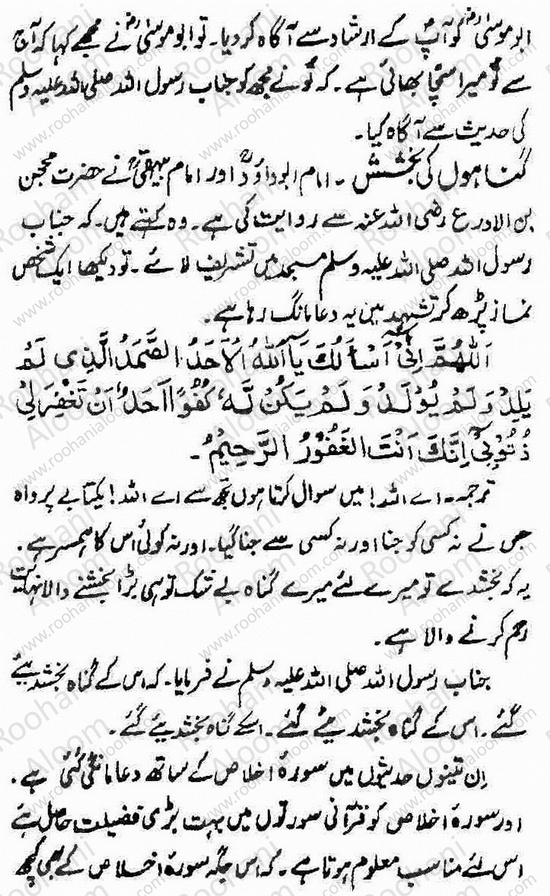 ابو موسیٰؓ کو آپؐ کے ارشاد سے آگاہ کر دیا۔ تو ابو موسیٰؓ نے مجھے کہا کہ آج
سے تُو میرا سچّا بھائی ہے۔ کہ تُو نے مجھ کو جناب رسول اللہ صلی اللہ علیہ وسلم
کی حدیث سے آگاہ کیا۔
گناہوں کی بخشش ۔ امام ابو داؤدؒ اور امام بیہقیؒ نے حضرت محجن
بن الادرع رضی اللہ عنہ سے روایت کی ہے۔ وہ کہتے ہیں۔ کہ جناب
رسول اللہ صلی اللہ علیہ وسلم مسجد میں تشریف لائے۔ تو دیکھا ایک شخص
نماز پڑھ کر تشہد میں یہ دعا مانگ رہا ہے۔
اَللّٰهُمَّ اِنِّیْ اَسْاَلُكَ یَا اَللّٰهُ الْاَحَدُ الصَّمَدُ الَّذِیْ لَمْ
یَلِدْ وَلَمْ یُوْلَدْ وَلَمْ یَكُنْ لَّهٗ كُفُوًا اَحَدٌ اَنْ تَغْفِرَ لِیْ
ذُنُوْبِیْ اِنَّكَ اَنْتَ الْغَفُوْرُ الرَّحِیْمُ۔
ترجمہ۔ اے اللہ! میں سوال کرتا ہوں تجھ سے اے اللہ! یکتا بے پرواہ
جس نے نہ کسی کو جنا اور نہ کسی سے جنا گیا۔ اور نہ کوئی اس کا ہمسر ہے۔
یہ کہ بخشدے تو میرے لئے میرے گناہ بے شک تو ہی بڑا بخشنے والا نہایت
رحم کرنے والا ہے۔
جناب رسول اللہ صلی اللہ علیہ وسلم نے فرمایا۔ کہ اس کے گناہ بخشدیئے
گئے۔ اس کے گناہ بخشدیئے گئے۔ اسکے گناہ بخشدیئے گئے۔
اِن تینوں حدیثوں میں سورۂ اخلاص کے ساتھ دعا مانگی گئی ہے۔
اور سورۂ اخلاص کو قرآنی سورتوں میں بہت بڑی فضیلت حاصل ہے
اس لئے مناسب معلوم ہوتا ہے۔ کہ اس جگہ سورۂ اخلاص کے بھی کچھ
Roohani Aloom
www.roohanialoom.com